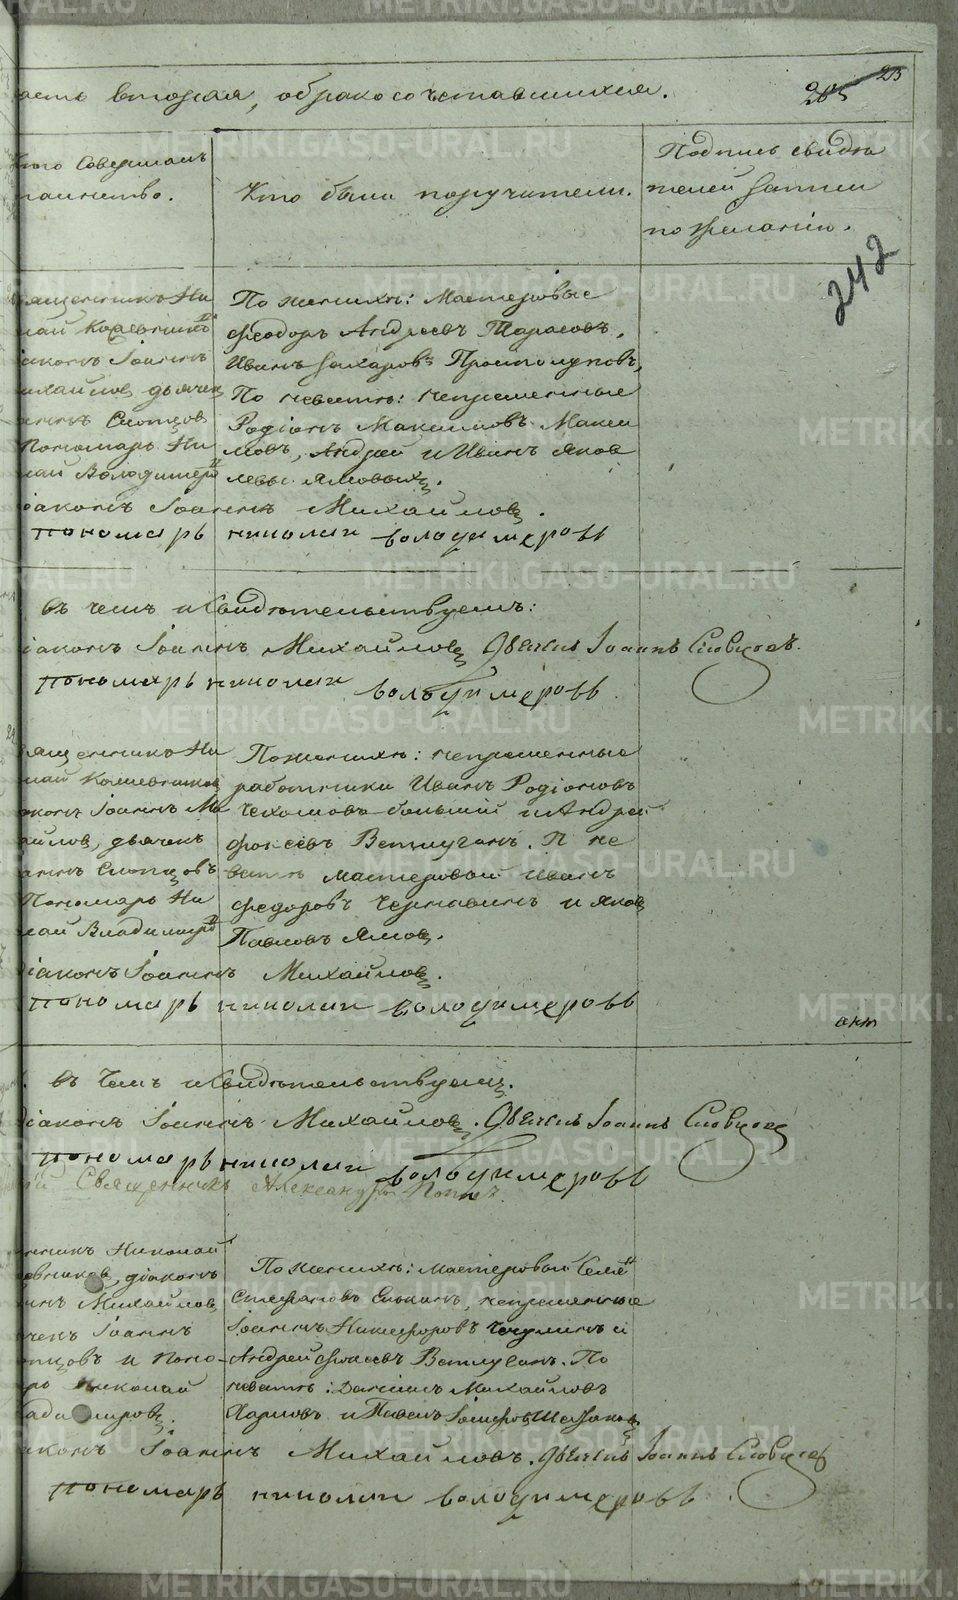 асть вторая, о бракосочетавшихся.
205 23
242
Кто совершалъ
таинство.
Кто были поручители.
Подпись свидѣ
телей записи
по желанію.
ященникъ Ни
лай
іаконъ Іоаннъ
ихайловъ, дьячек
аннъ Словцовъ
Пономарь Ни
лай Володимеровъ
По женихѣ: Мастеровые
Ѳеодоръ Андреевъ Тарасовъ,
Иванъ Захаровъ Простолуповъ,
По невестѣ: непременные
Родіонъ Максимовъ Макси
мовъ, Андрей и Иванъ Яков
левы Ямовыхъ.
іаконъ Іоаннъ Михайловъ.
пономарь николаи володимеровъ
въ чемъ и свидѣтельствуемъ:
іаконъ Іоаннъ Михайловъ Дьячекъ Іоаннъ Словцовъ.
пономарь николаи володимеровъ
ященникъ Ни
лай
іаконъ Іоаннъ Ми
айловъ, дьячекъ
аннъ Словцовъ
Пономарь Ни
лай Владимировъ
По женихѣ: непременные
работники Иванъ Родіоновъ
большій и Андрей
Ветлугинъ. П не
вестѣ мастеровой Иванъ
Ѳедоровъ Чернавинъ и Яковъ
Павловъ Ямовъ.
іаконъ Іоаннъ Михайловъ.
пономарь николаи володимеровъ
акт
въ чемъ и свидѣтельствуемъ.
Діаконъ Іоаннъ Михайловъ. Дьячекъ Іоаннъ Словцовъ
пономарь николаи володимеровъ
Священникъ Александръ Поповъ
енникъ Николай
евниковъ, діаконъ
аннъ Михайловъ,
чекъ Іоаннъ
вцовъ и Поно-
рь Николай
адимировъ.
По женихѣ: мастеровой
Стефановъ непременные
Іоаннъ Никифоровъ Чечулинъ и
Андрей Ветлугинъ. По
невестѣ: Даніилъ Михайловъ
Харловъ и Павелъ
іаконъ Іоаннъ Михайловъ. Дьячекъ Іоаннъ Словцовъ
пономарь николаи володимеровъ
METRIKI.GASO-URAL.RU